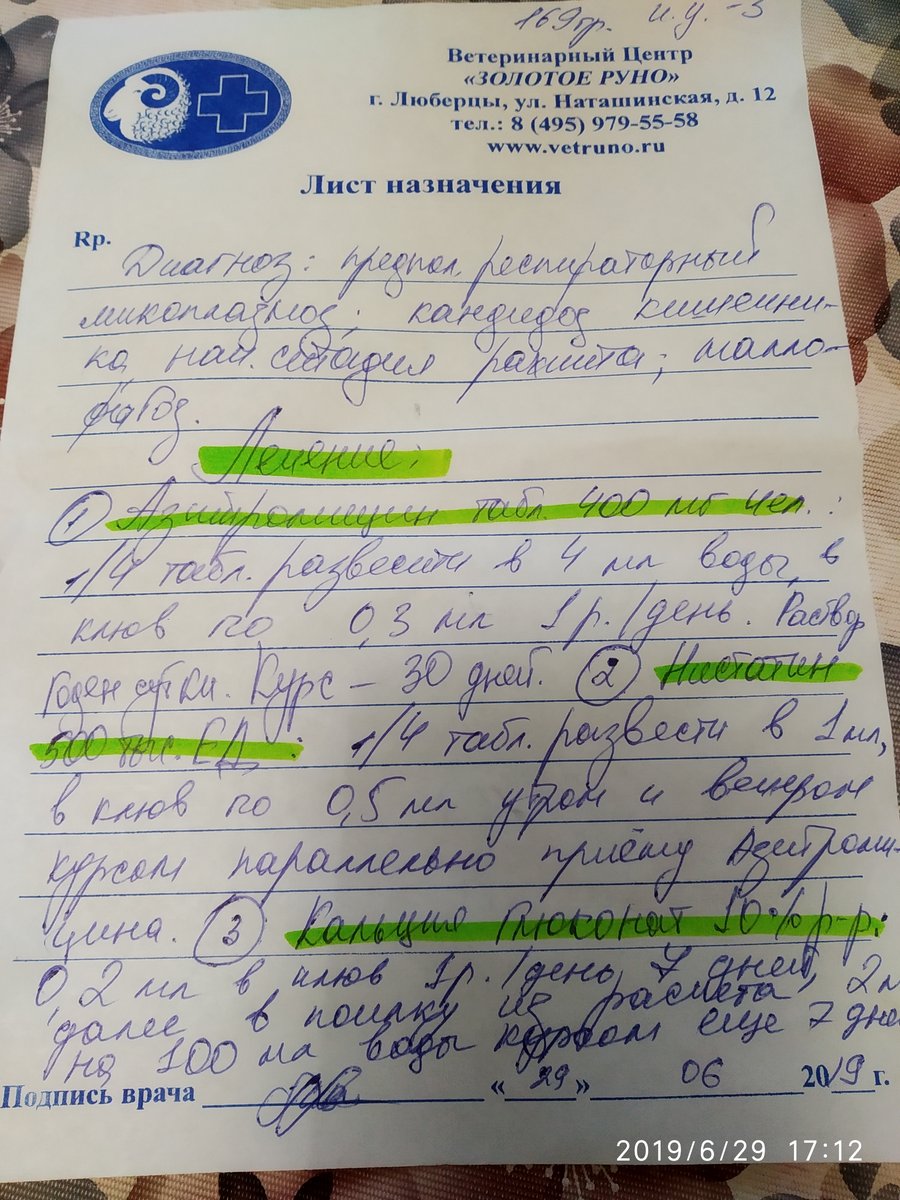 169гр. и.у.-3
Ветеринарный Центр
«ЗОЛОТОЕ РУНО»
г. Люберцы, ул. Наташинская, д. 12
тел.: 8 (495) 979-55-58
www.vetruno.ru
Лист назначения
Rp.
Диагноз: предпол. респираторный
микоплазмоз; кандидоз кишечни-
ка, нач. стадия рахита; малло-
фагоз.
Лечение:
1 Азитромицин табл. 400 мг чел.:
1/4 табл. развести в 4 мл воды, в
клюв по 0,3 мл 1р./день. Раствор
годен сутки. Курс – 30 дней. 2 Нистатин
500 тыс. ЕД: 1/4 табл. развести в 1 мл,
в клюв по 0,5 мл утром и вечером
курсом параллельно приёму Азитроми-
цина. 3 Кальция глюконат 10% р-р:
0,2 мл в клюв 1р./день 7 дней,
далее в поилку из расчета 2м
на 100 мл воды курсом еще 7 дне
Подпись врача «29» 06 2019 г.
2019/6/29 17:12